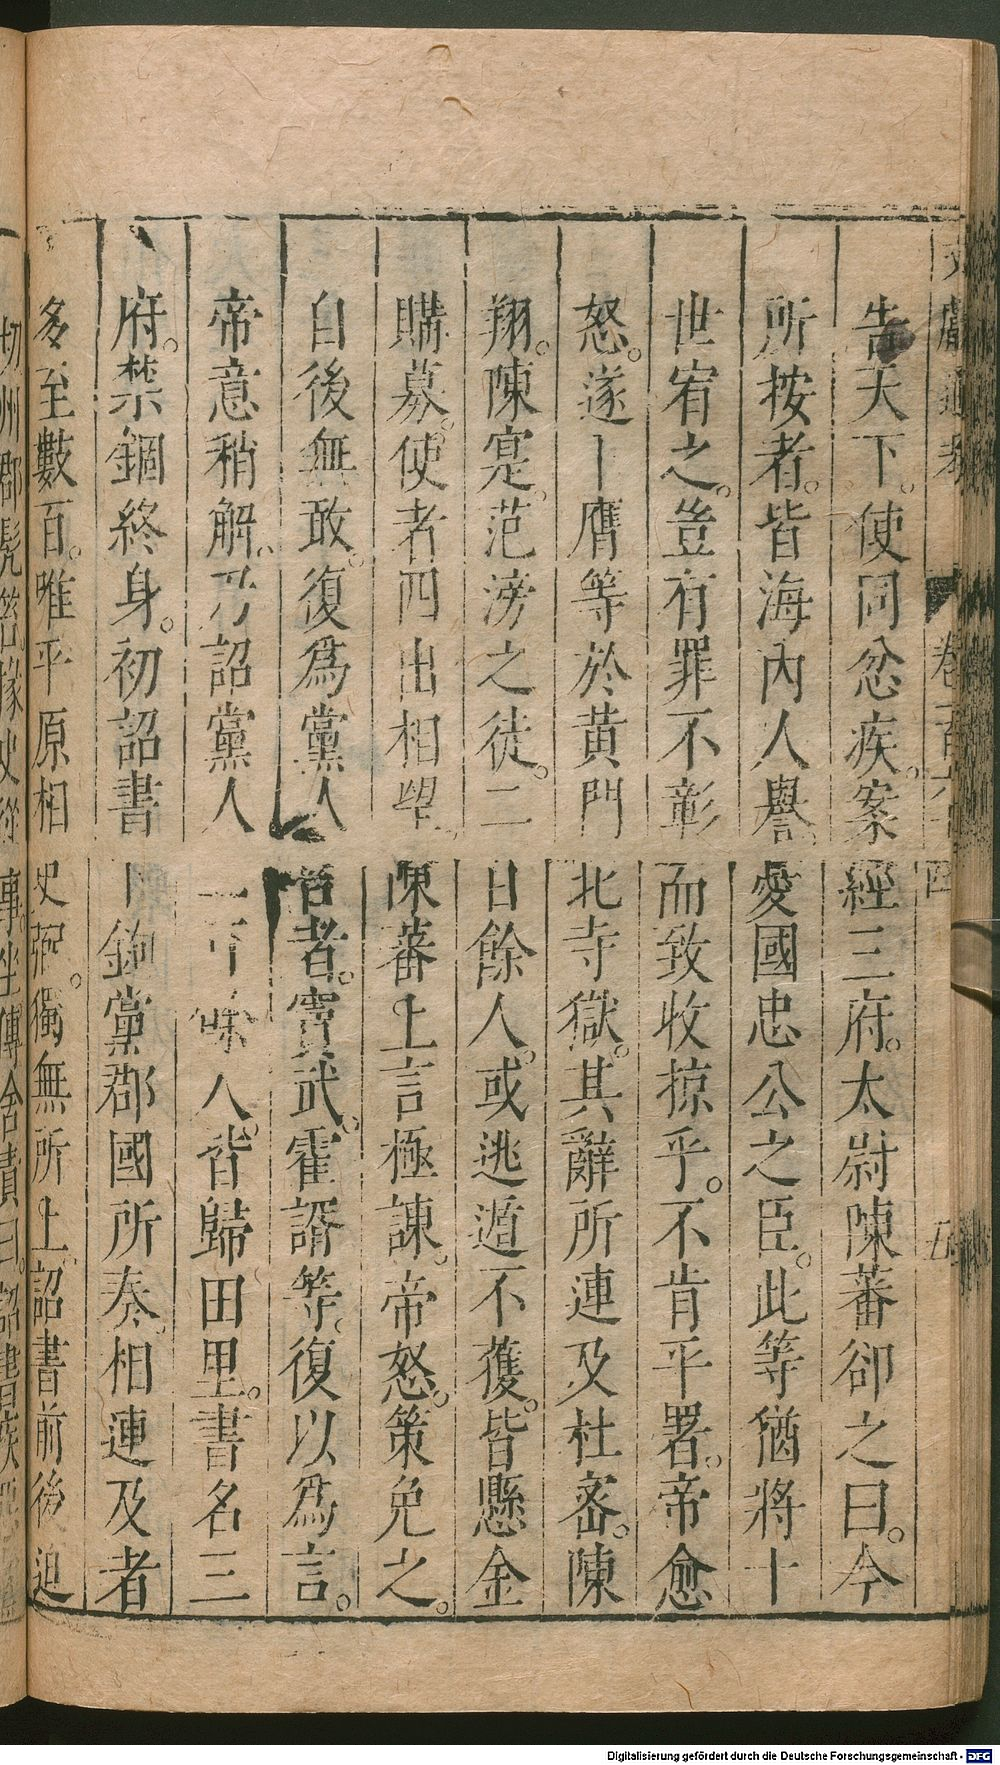 告天下。使同忿疾。案經三府。太尉陳蕃卻之曰。今
所按者。皆海內人譽。愛國忠公之臣。此等猶將十
世宥之。豈有罪不彰而致收掠乎。不肯平署。帝愈
怒。遂下膺等於黃門北寺獄。其辭所連及杜密。陳
翔。陳寔。范滂之徒。二百餘人。或逃遁不獲。皆懸金
購募。使者四出相望。陳蕃上言極諫。帝怒。策免之。
自後無敢復為黨人言者。竇武。霍諝等。復以為言。
帝意稍解。乃詔黨人二百餘人。皆歸田里。書名三
府。禁錮終身。初詔書下鉤黨郡國所奏。相連及者
多至數百。唯平原相史弼。獨無所上。詔書前後迫
切州郡髡笞掾史從事坐傳舍責曰。詔書疾惡
文獻通考 卷一百六十四 五
Digitalisierung gefördert durch die Deutsche Forschungsgemeinschaft - DFG